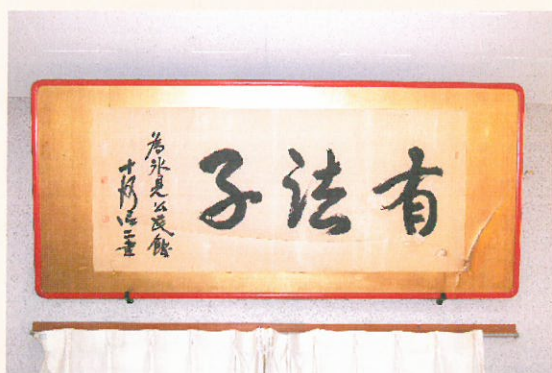 有法子
為氷見公民館
十河信二書